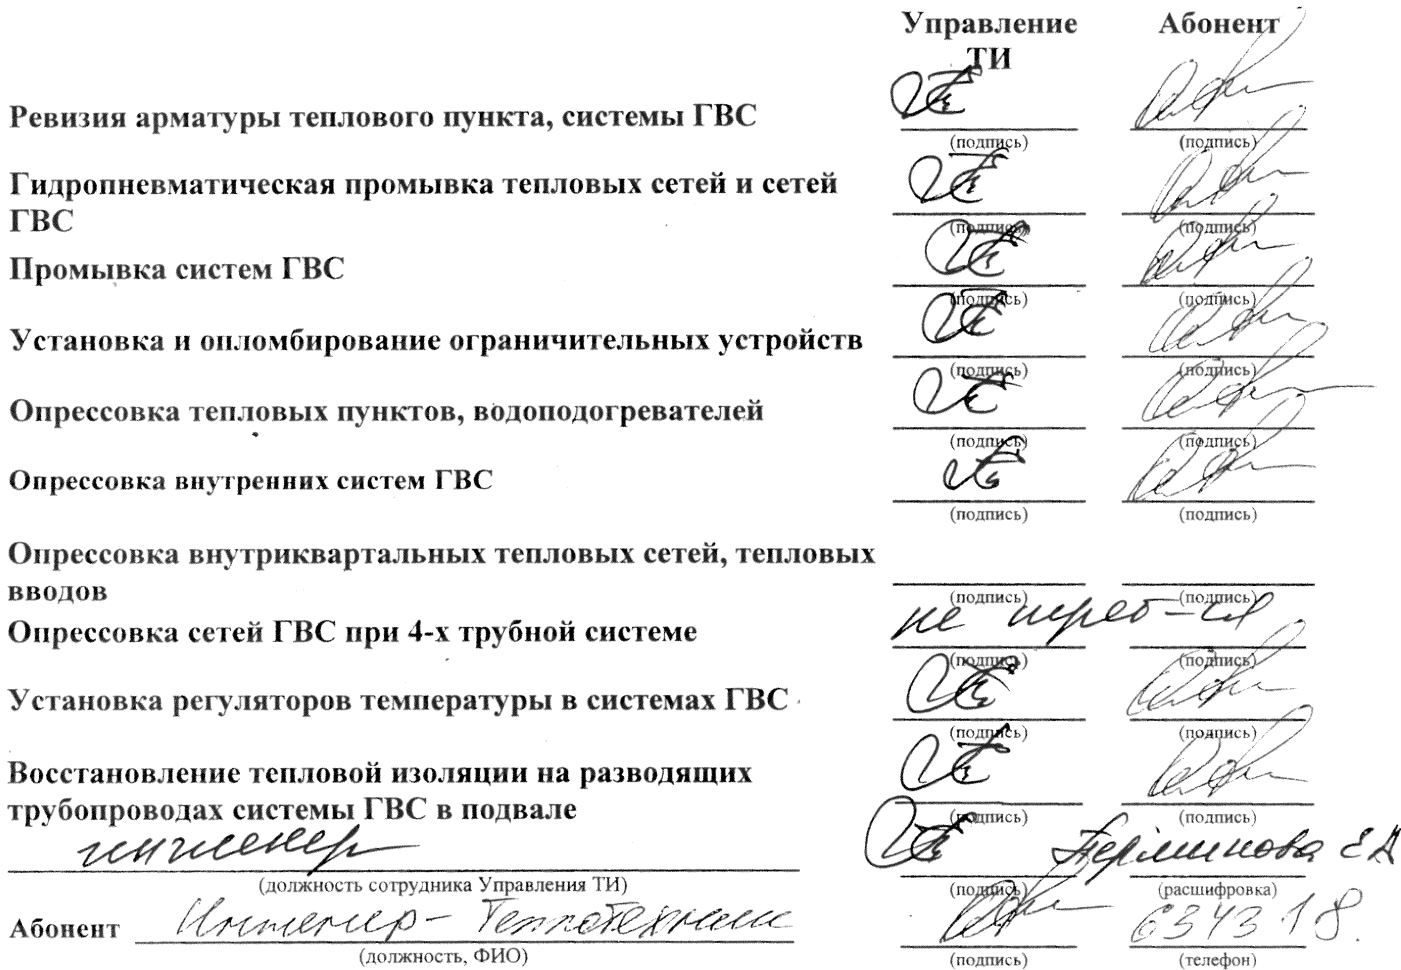 Управление Абонент
ТИ
Ревизия арматуры теплового пункта, системы ГВС
(подпись) (подпись)
Гидропневматическая промывка тепловых сетей и сетей
ГВС
(подпись) (подпись)
Промывка систем ГВС
(подпись) (подпись)
Установка и опломбирование ограничительных устройств
(подпись) (подпись)
Опрессовка тепловых пунктов, водоподогревателей
(подпись) (подпись)
Опрессовка внутренних систем ГВС
(подпись) (подпись)
Опрессовка внутриквартальных тепловых сетей, тепловых
вводов
(подпись) (подпись)
Опрессовка сетей ГВС при 4-х трубной системе не треб-ся
(подпись) (подпись)
Установка регуляторов температуры в системах ГВС
(подпись) (подпись)
Восстановление тепловой изоляции на разводящих
трубопроводах системы ГВС в подвале
(подпись) (подпись)
инженер Перминова Е А
(должность сотрудника Управления ТИ) (подпись) (расшифровка)
Абонент Инженер-Теплотехник 634318.
(должность, ФИО) (подпись) (телефон)